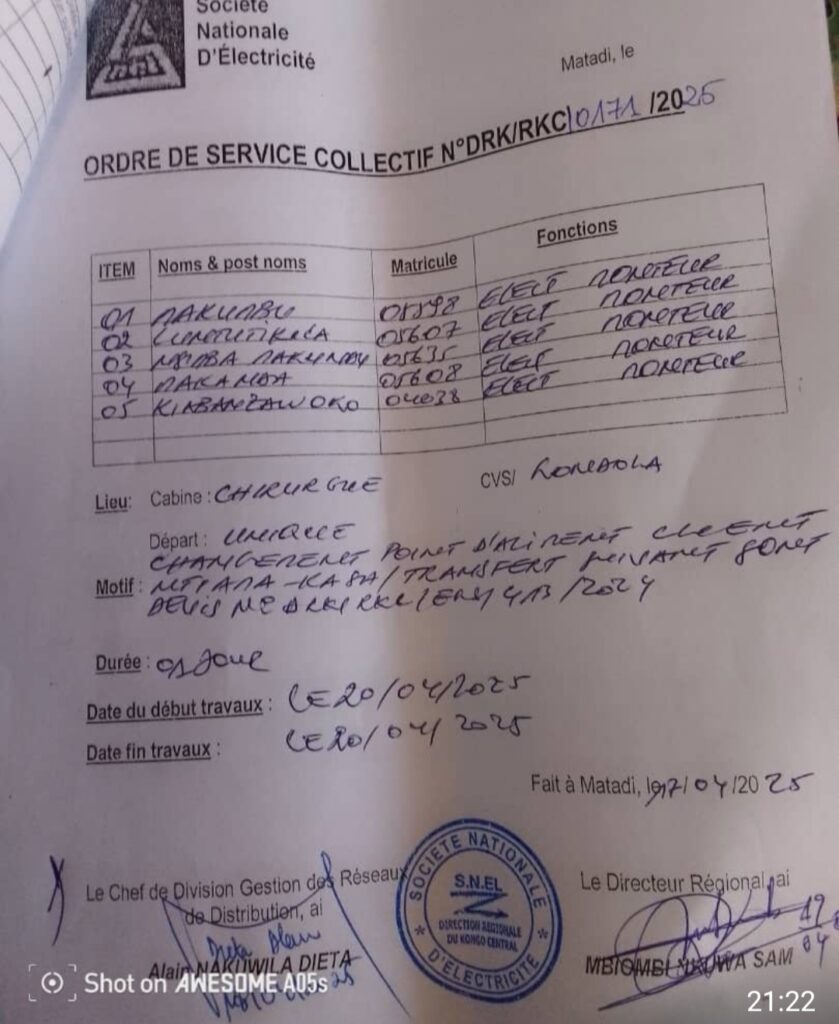 Société
Nationale
D'Électricité
Matadi, le
ORDRE DE SERVICE COLLECTIF N°DRK/RKC/0171/2025
ITEM Noms & post noms Matricule Fonctions
01 MAKUMBU ELECT MONTEUR
02 05607 ELECT MONTEUR
03 MAKUMBU 05635 ELECT MONTEUR
04 MAKAMBA 05608 ELECT MONTEUR
05 KIABANZAWOKO 04038 ELECT MONTEUR
Lieu: Cabine : CHIRURGIE CVS/
Départ : UNIQUE
CHANGEMENT POINT D'ALIMENT CLIENT
Motif : /TRANSFERT PUISANT
DEVIS /2024
Durée : 01 JOUR
Date du début travaux : LE 20/04/2025
Date fin travaux : LE 20/04/2025
Fait à Matadi, le 17/04/2025
Le Chef de Division Gestion des Réseaux
de Distribution, ai
Alain NAKUWILA DIETA
SOCIETE NATIONALE
S.N.EL
DIRECTION REGIONALE
DU KONGO CENTRAL
D'ELECTRICITE
Le Directeur Régional, ai
MBIOMBI NKUWA SAM
Shot on AWESOME A05s
21:22